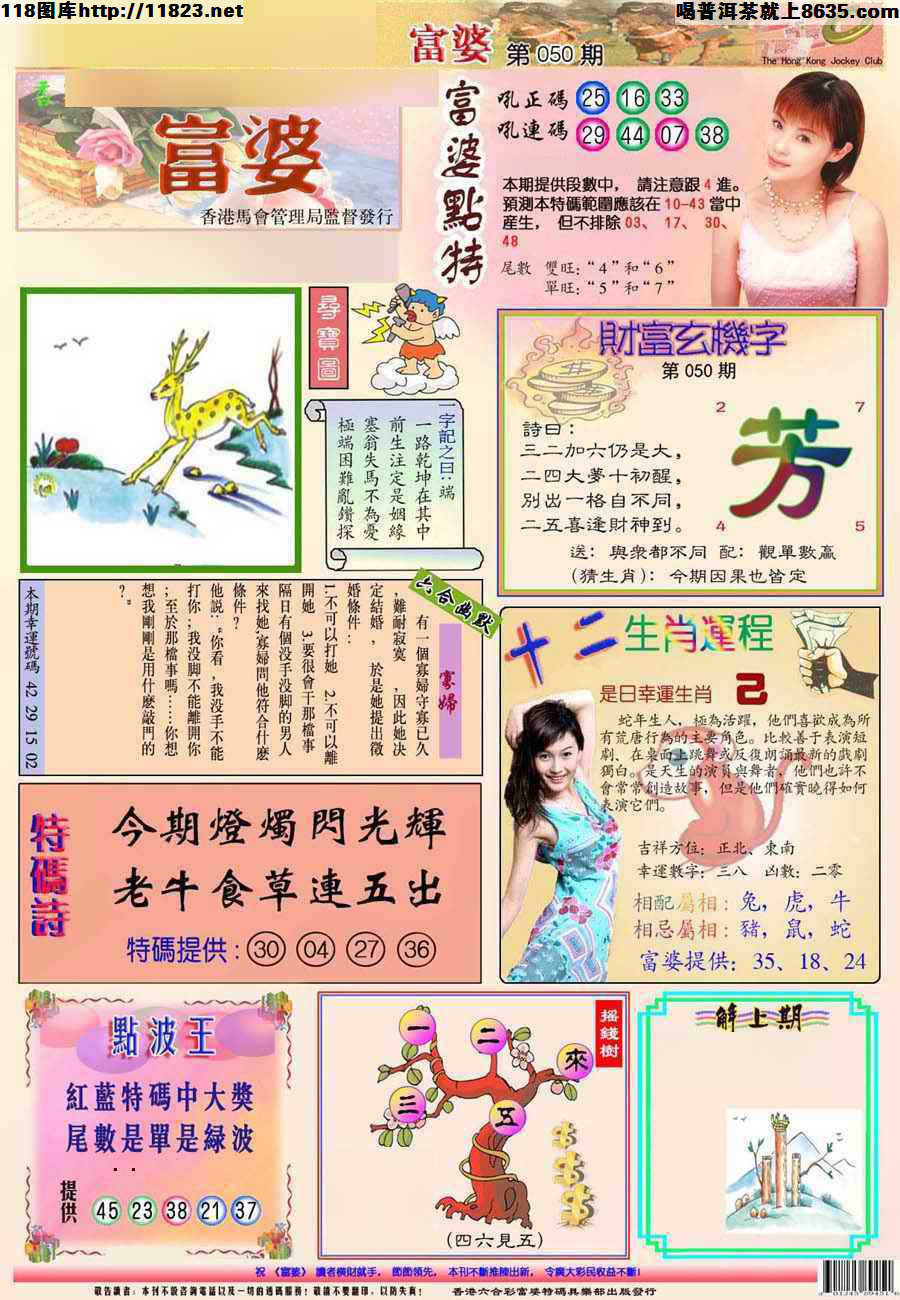 118图库http://11823.net
喝普洱茶就上8635.com
富婆 第050期
The Hong Kong Jockey Club
香
富婆
香港馬會管理局監督發行
富婆點特
吼正碼 25 16 33
吼連碼 29 44 07 38
本期提供段數中，請注意跟4進。
預測本特碼範圍應該在10-43當中
産生，但不排除03、17、30、
48
尾數 雙旺:“4”和“6”
單旺:“5”和“7”
尋寶圖
一字記之曰:端
一路乾坤在其中
前生注定是姻緣
塞翁失馬不為憂
極端困難亂鑽探
財富玄機字
第050期
詩曰:
三二加六仍是大，
二四大夢十初醒，
別出一格自不同，
二五喜逢財神到。
2
7
芳
4
5
送: 與衆都不同 配: 觀單數贏
(猜生肖): 今期因果也皆定
六合幽默
寡婦
有一個寡婦守寡已久
，雖耐寂寞，因此她决
定結婚，於是她提出徵
婚條件:
1.不可以打她 2.不可以離
開她 3.要很會干那檔事
隔日有個没手没脚的男人
來找她,寡婦問他符合什麽
條件?
他説:“你看，我没手不能
打你;我没脚不能離開你
;至於那檔事嗎……你想
想我剛剛是用什麽敲門的
?”
本期幸運號碼 42 29 15 02
十二生肖運程
是日幸運生肖 己
蛇年生人，極為活躍，他們喜歡成為所
有荒唐行為的主要角色。比較善于表演短
劇、在桌面上跳舞或反復朗誦最新的戲劇
獨白。是天生的演員與舞者，他們也許不
會常常創造故事，但是他們確實曉得如何
表演它們。
吉祥方位: 正北、東南
幸運數字: 三八 凶數: 二零
相配屬相: 兔, 虎, 牛
相忌屬相: 豬, 鼠, 蛇
富婆提供: 35、18、24
特碼詩
今期燈燭閃光輝
老牛食草連五出
特碼提供: 30 04 27 36
點波王
紅藍特碼中大獎
尾數是單是緑波
提供 45 23 38 21 37
搖錢樹
一 二 來
三 五
(四六見五)
解上期
祝 《富婆》 讀者横財就手， 節節領先， 本刊不斷推陳出新， 令廣大彩民收益不斷!
敬告讀者: 本刊不設咨詢電話以及一切的透碼服務! 敬請不要翻印，以防失真! 香港六合彩富婆特碼俱樂部出版發行